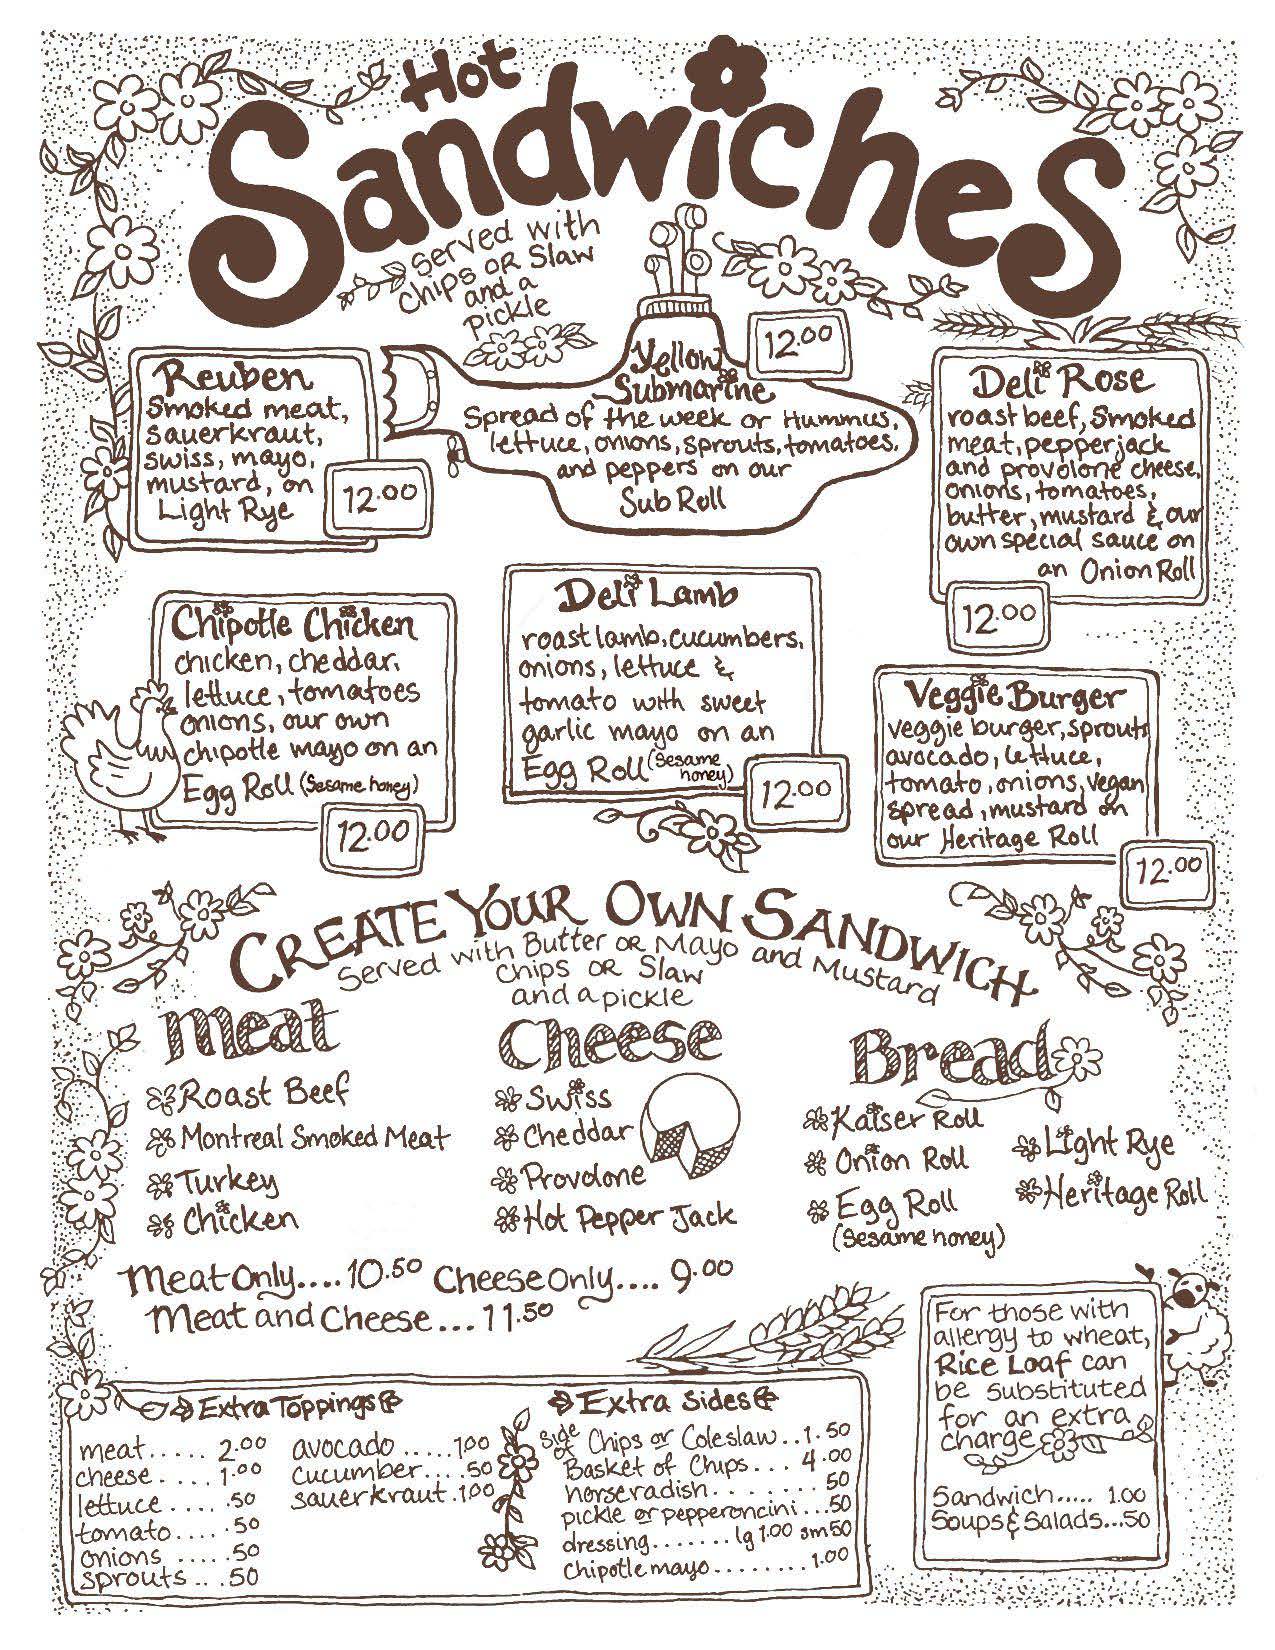 Hot
Sandwiches
Served with
Chips OR Slaw
and a
pickle
Reuben
Smoked meat,
sauerkraut,
swiss, mayo,
mustard, on
Light Rye
12.00
Yellow
Submarine
Spread of the week or Hummus,
lettuce, onions, sprouts, tomatoes,
and peppers on our
Sub Roll
12.00
Deli Rose
roast beef, Smoked
meat, pepperjack
and provolone cheese,
onions, tomatoes,
butter, mustard & our
own special sauce on
an Onion Roll
12.00
Chipotle Chicken
chicken, cheddar,
lettuce, tomatoes
onions, our own
chipotle mayo on an
Egg Roll (Sesame honey)
12.00
Deli Lamb
roast lamb, cucumbers,
onions, lettuce &
tomato with sweet
garlic mayo on an
Egg Roll (Sesame honey)
12.00
Veggie Burger
veggie burger, sprouts
avocado, lettuce,
tomato, onions, vegan
spread, mustard on
our Heritage Roll
12.00
CREATE YOUR OWN SANDWICH
Served with Butter OR Mayo and Mustard
Chips OR Slaw
and a pickle
Meat
Roast Beef
Montreal Smoked Meat
Turkey
Chicken
Cheese
Swiss
Cheddar
Provolone
Hot Pepper Jack
Bread
Kaiser Roll
Onion Roll
Egg Roll
(Sesame honey)
Light Rye
Heritage Roll
Meat Only.... 10.50 Cheese Only.... 9.00
Meat and Cheese... 11.50
Extra Toppings
meat..... 2.00
cheese.... 1.00
lettuce.... .50
tomato..... .50
onions ..... .50
sprouts... .50
avocado ..... 1.00
cucumber.... .50
sauerkraut . 1.00
Extra Sides
Side of Chips or Coleslaw.. 1.50
Basket of Chips... 4.00
horseradish....... 50
pickle or pepperoncini ... .50
dressing....... lg 1.00 sm 50
chipotle mayo........ 1.00
For those with
allergy to wheat,
Rice Loaf can
be substituted
for an extra
charge
Sandwich..... 1.00
Soups & Salads...50